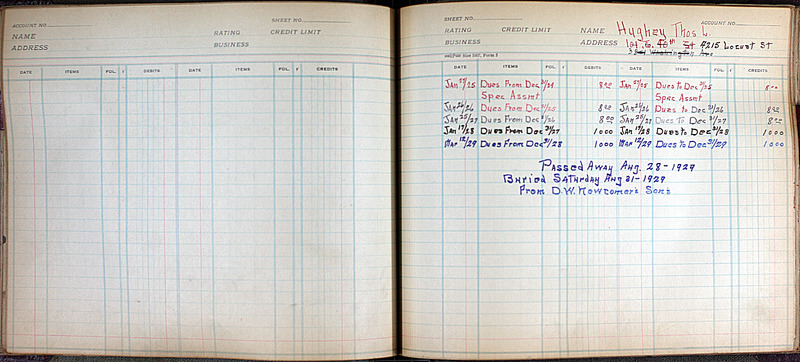 ACCOUNT NO.
SHEET NO.
NAME
RATING
CREDIT LIMIT
ADDRESS
BUSINESS
DATE ITEMS FOL. √ DEBITS DATE ITEMS FOL. √ CREDITS
SHEET NO.
ACCOUNT NO.
RATING CREDIT LIMIT NAME Hughey Thos L.
BUSINESS ADDRESS 101 E. 46th St 4215 Locust St
Washington
DATE ITEMS FOL. √ DEBITS DATE ITEMS FOL. √ CREDITS
Jan 27/25 Dues From Dec 31/24 8.00 Jan 27/25 Dues to Dec 31/25 8.00
Spec Assmt Spec Assmt
Jan 26/26 Dues From Dec 31/25 8.00 Jan 26/26 Dues to Dec 31/26 8.00
Jan 25/27 Dues From Dec 31/26 8.00 Jan 25/27 Dues To Dec 31/27 8.00
Jan 17/28 Dues From Dec 31/27 1000 Jan 17/28 Dues to Dec 31/28 1000
Mar 12/29 Dues From Dec 31/28 1000 Mar 12/29 Dues to Dec 31/29 1000
Passed Away Aug. 28-1929
Buried Saturday Aug 31-1929
From D.W. Newcomer's Sons